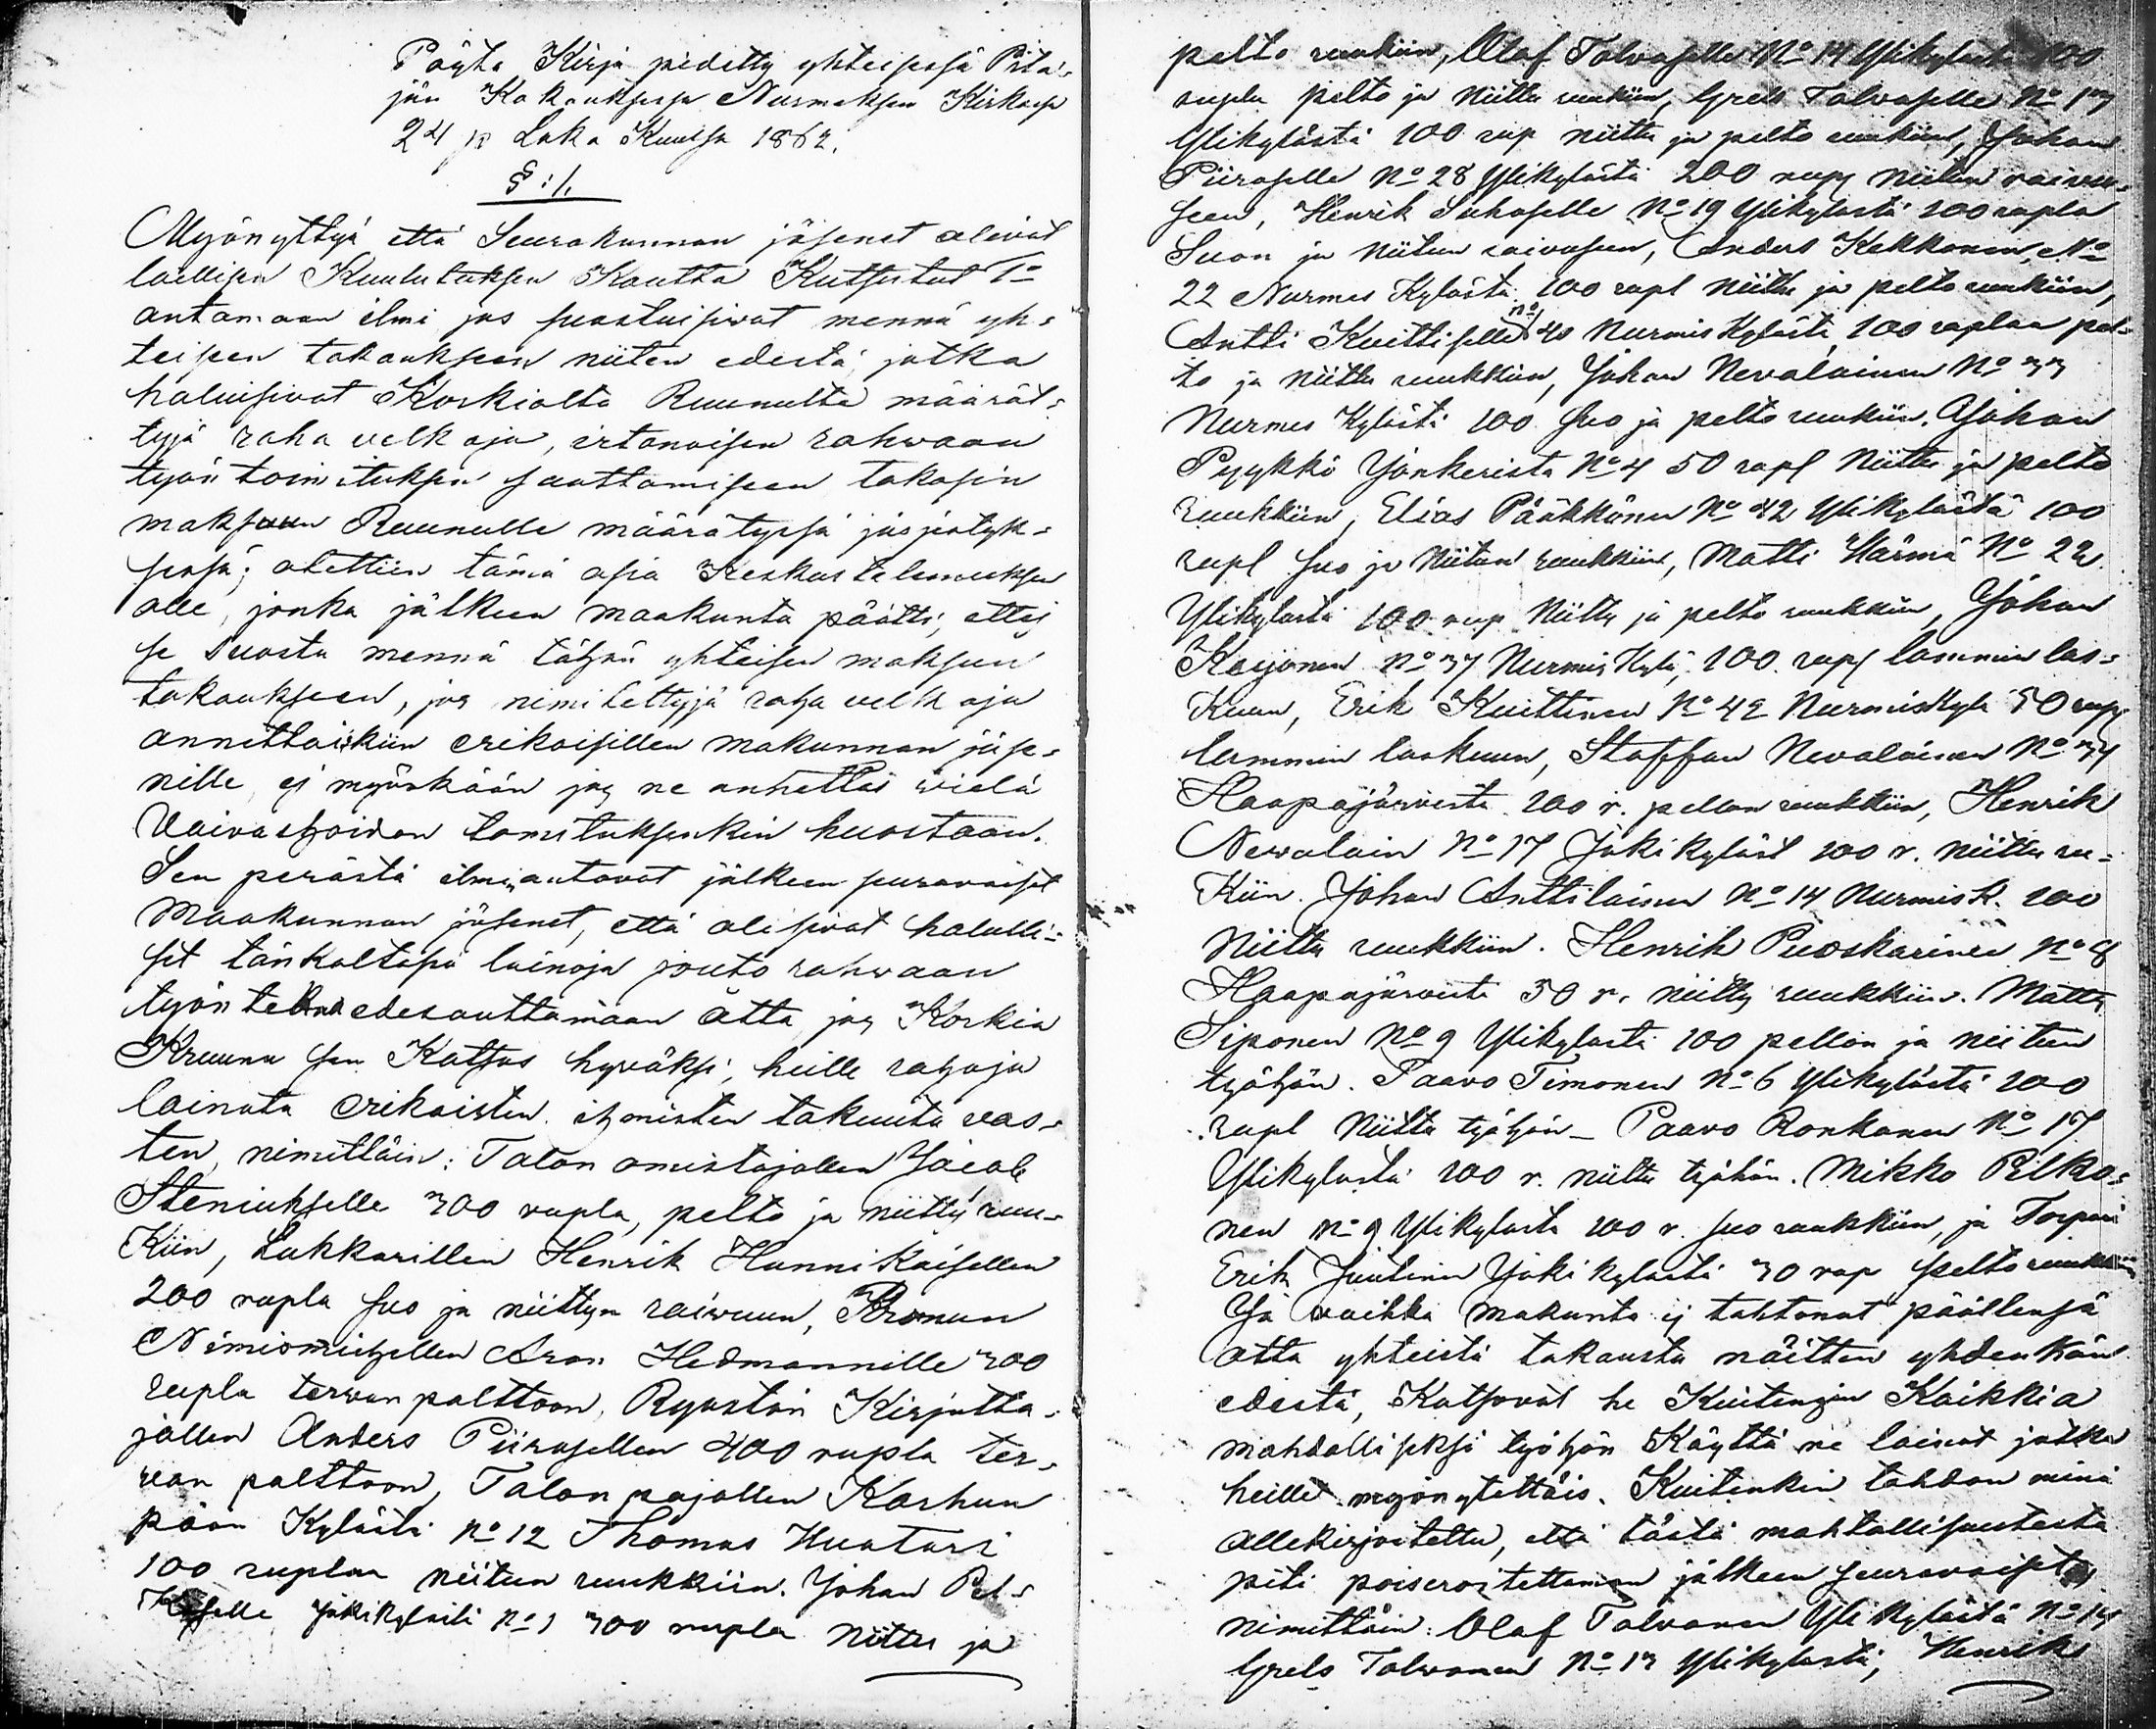 Pöytä Kirja pidetty yhteisessä Pitä-
jän Kokouksessa Nurmeksen Kirkossa
24 p Loka Kuussa 1862.
§:1.
Myönyttyä että Seurakunnan jäsenet olivat
laillisen Kuulutuksen Kautta Kutsutut 1o
antamaan ilmi jos suostuisivat mennä yh-
teiseen takaukseen niiten edestä, jotka
haluisivat Korkialta Ruunulta määrät-
tyjä raha velkoja, irtonaisen rahwaan
työn toimituksen saattamiseen takasin
maksuun Ruunulle määrätyssä järjestyk-
sessä; otettiin tämä asia Keskustelemuksen
alle, jonka jälkeen maakunta päätti, ettej
se suostu mennä tähän yhteisen maksun
takaukseen, jos nimitettyjä raha velkoja
annettaiskiin erikoisillen makunnan jäse-
nille, ej myöskään jos ne annettas vielä
Vaivashoidon toimituksenkin huostaan.
Sen perästä ilmiantovat jälkeen seuravaiset
Maakunnan jäsenet, että olisivat halulli-
set tänkaltasia lainoja jouto rahwaan
työn tekoa edesauttamaan otta, jos Korkia
Kruunu sen Katsos hyväksi, heille rahoja
lainata erikoisten ihmisten takuuta vas-
ten, nimittäin: Talon omistajallen Jacob
Steniukselle 300 rupla, pelto ja niitty ruu-
Kiin, Lukkarillen Henrik Hannikaisellen
200 rupla suo ja niittyn raivuun, Kronun
Nimismiehellen Aron Hedmannille 300
rupla tervan polttoon, Ryustän Kirjutta-
jallen Anders Piirasellen 400 rupla ter-
van polttoon, Talon pojallen Karhun
pään Kylästä No 12 Thomas Huotari
100 ruplaa niitun ruukkiin. Johan Pel-
Koselle Jokikylästä No 1 300 rupla Niittu ja
pelto ruukiin, Olaf Tolvaselle No 14 Ylikylästä 100
rupla pelto ja Niittu ruukiin, Grels Tolvaselle No 13
Ylikylästä 100 rup niittu ja pelto ruukiin, Johan
Piiraselle No 28 Ylikylästä 200 rupl niitun raivu-
seen, Henrik Suhoselle No 19 Ylikylästä 100 rupla
Suon ja Niitun raivuseen, Anders Kekkonen No
22 Nurmes Kylästä 100 rupl Niittu ja pelto ruukiin,
Antti Kuittiselle No 40 Nurmis Kylästä, 100 ruplaa pel-
to ja Niittu ruukkiin, Johan Nevalainen No 33
Nurmes Kylästä 100 suo ja pelto ruukiin. Johan
Pyykkö Jonkerista No 4 50 rupl Niittu ja pelto
ruukkiin, Elias Pääkkönen No 42 Ylikylästä 100
rupl suo ja Niitun ruukkiin, Matti Härmä No 22
Ylikylästä 100 rup Niittu ja pelto ruukkiin, Johan
Karjonen No 37 Nurmis Kylä, 100 rupl lammin las-
Kuun, Erik Kuittinen No 42 Nurmiskylä 50 rupl
lammin laskuun, Staffan Nevalainen No 34
Haapajärvestä 100 r. pellon ruukkiin, Henrik
Nevalain No 17 Jokikyläst 100 r. niittu ru-
Kiin. Johan Anttilainen No 14 Nurmis K. 100
Niittu ruukkiin. Henrik Puoskarinen No 8
Haapajärvestä 50 r. niitty ruukkiin. Matti
Siponen No 9 Ylikylästä 100 pellon ja niitun
työhön. Paavo Timonen No 6 Ylikylästä 100
rupl Niittu työhön – Paavo Ronkanen No 17
Ylikylästä 100 r. niittu työhön. Mikko Pelko-
nen No 9 Ylikylästä 100 r. suo ruukkiin, ja Torpari
Erik Juutinen Jokikylästä 30 rup pelto ruukkiin
Ja vaikka makunta ej tahtonut päällensä
otta yhteistä takausta näitten yhdenkän
edestä, Katsovat he Kuitengin Kaikkia
mahdollisiksi työhön Käyttä ne lainat jotka
heille myönytettäis. Kuitenkin tahdon minä
allekirjoitettu, että tästä mahtollisuutesta
piti poiseroitettaman jälkeen seuravaiset
nimittäin: Olaf Tolvanen Ylikylästä No 14
Grels Tolvanen No 13 Ylikylästä, Henrik